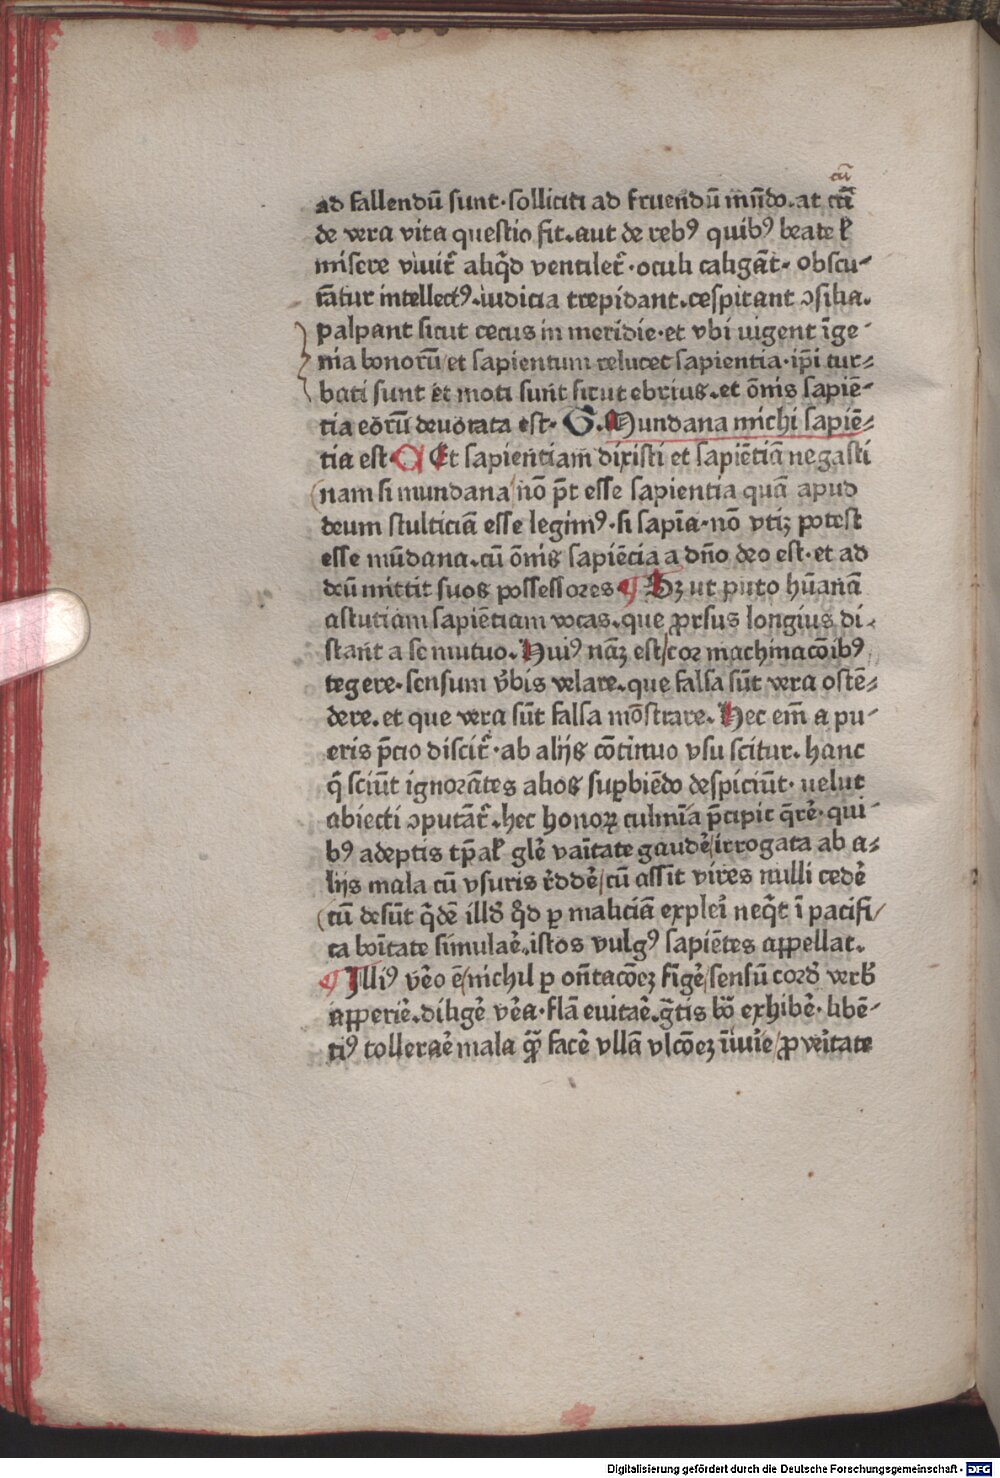 cū
ad fallendū sunt·solliciti ad fruendū mūdo.at cū
de vera vita questio fit.aut de rebꝰ quibꝰ beate ł
misere viuit̄ aliq̄d ventilet̄·oculi caligāt·obscu-
rātur intellectꝰ.iudicia trepidant.cespitant ↄsilia.
palpant sicut cecus in meridie·et vbi uigent īge-
nia bonorū/et sapientum relucet sapientia·ip̄i tur-
bati sunt et moti sunt sicut ebrius.et ōnis sapiē-
tia eorū deuorata est· G.Mundana michi sapiē-
tia est. ¶ Et sapientiam dixisti et sapiētiā negasti
(nam si mundana/nō p̄t esse sapientia quā apud
deum stulticiā esse legimꝰ·si sapīa·nō vtiꝫ potest
esse mūdana.cū ōnis sapiēcia a dn̄o deo est·et ad
deū mittit suos possessores. ¶ Sꝫ ut puto hūanā
astutiam sapiētiam vocas.que ꝓrsus longius di-
stant a se mutuo.Huiꝰ nāꝫ est/cor machinacōibꝰ
tegere·sensum v̄bis velare.que falsa sūt vera ostē-
dere.et que vera sūt falsa mōstrare.Hec em̄ a pu-
eris p̄cio discit̄·ab alijs cōtinuo vsu scitur.hanc
q̄ sciūt ignorātes alios suꝑbiēdo despiciūt·uelut
abiecti ↄputāt̄.hec honoꝝ culmīa p̄cipit q̄rē·qui-
bꝰ adeptis tp̄alꝭ glē vaītate gaudē/irrogata ab a-
lijs mala cū vsuris r̄ddē/cū assit vires nulli cedē
(cū desūt q̄dē illd̄ q̄d ꝑ maliciā expleī neq̄t ī pacifi/
ca boītate simulaē.istos vulgꝰ sapiētes appellat.
¶ Illiꝰ v̄eo ē/nichil ꝑ on̄tacōeꝫ fīgē/sensū cord̄ verb̄
apperiē.diligē v̄ea·flā euitaē.ḡtis bō exhibē·libē-
tiꝰ tolleraē mala q̄ꝫ facē vllā vlcōeꝫ īiuīe/ꝓ veītate
Digitalisierung gefördert durch die Deutsche Forschungsgemeinschaft - DFG